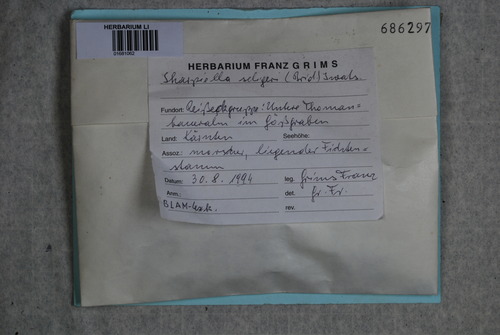 HERBARIUM LI
686297
HERBARIUM FRANZ GRIMS
Sharpiella seligeri (Brid) Iwats.
Fundort: Reißeckgruppe: Untere Thoman-
baueralm im Gößgraben
Land: Kärnten Seehöhe:
Assoz: morscher, liegender Fichten-
stamm
Datum: 30.8.1994 leg. Grims Franz
Anm.: det. Gr. Fr.
BLAM-Exk. rev.